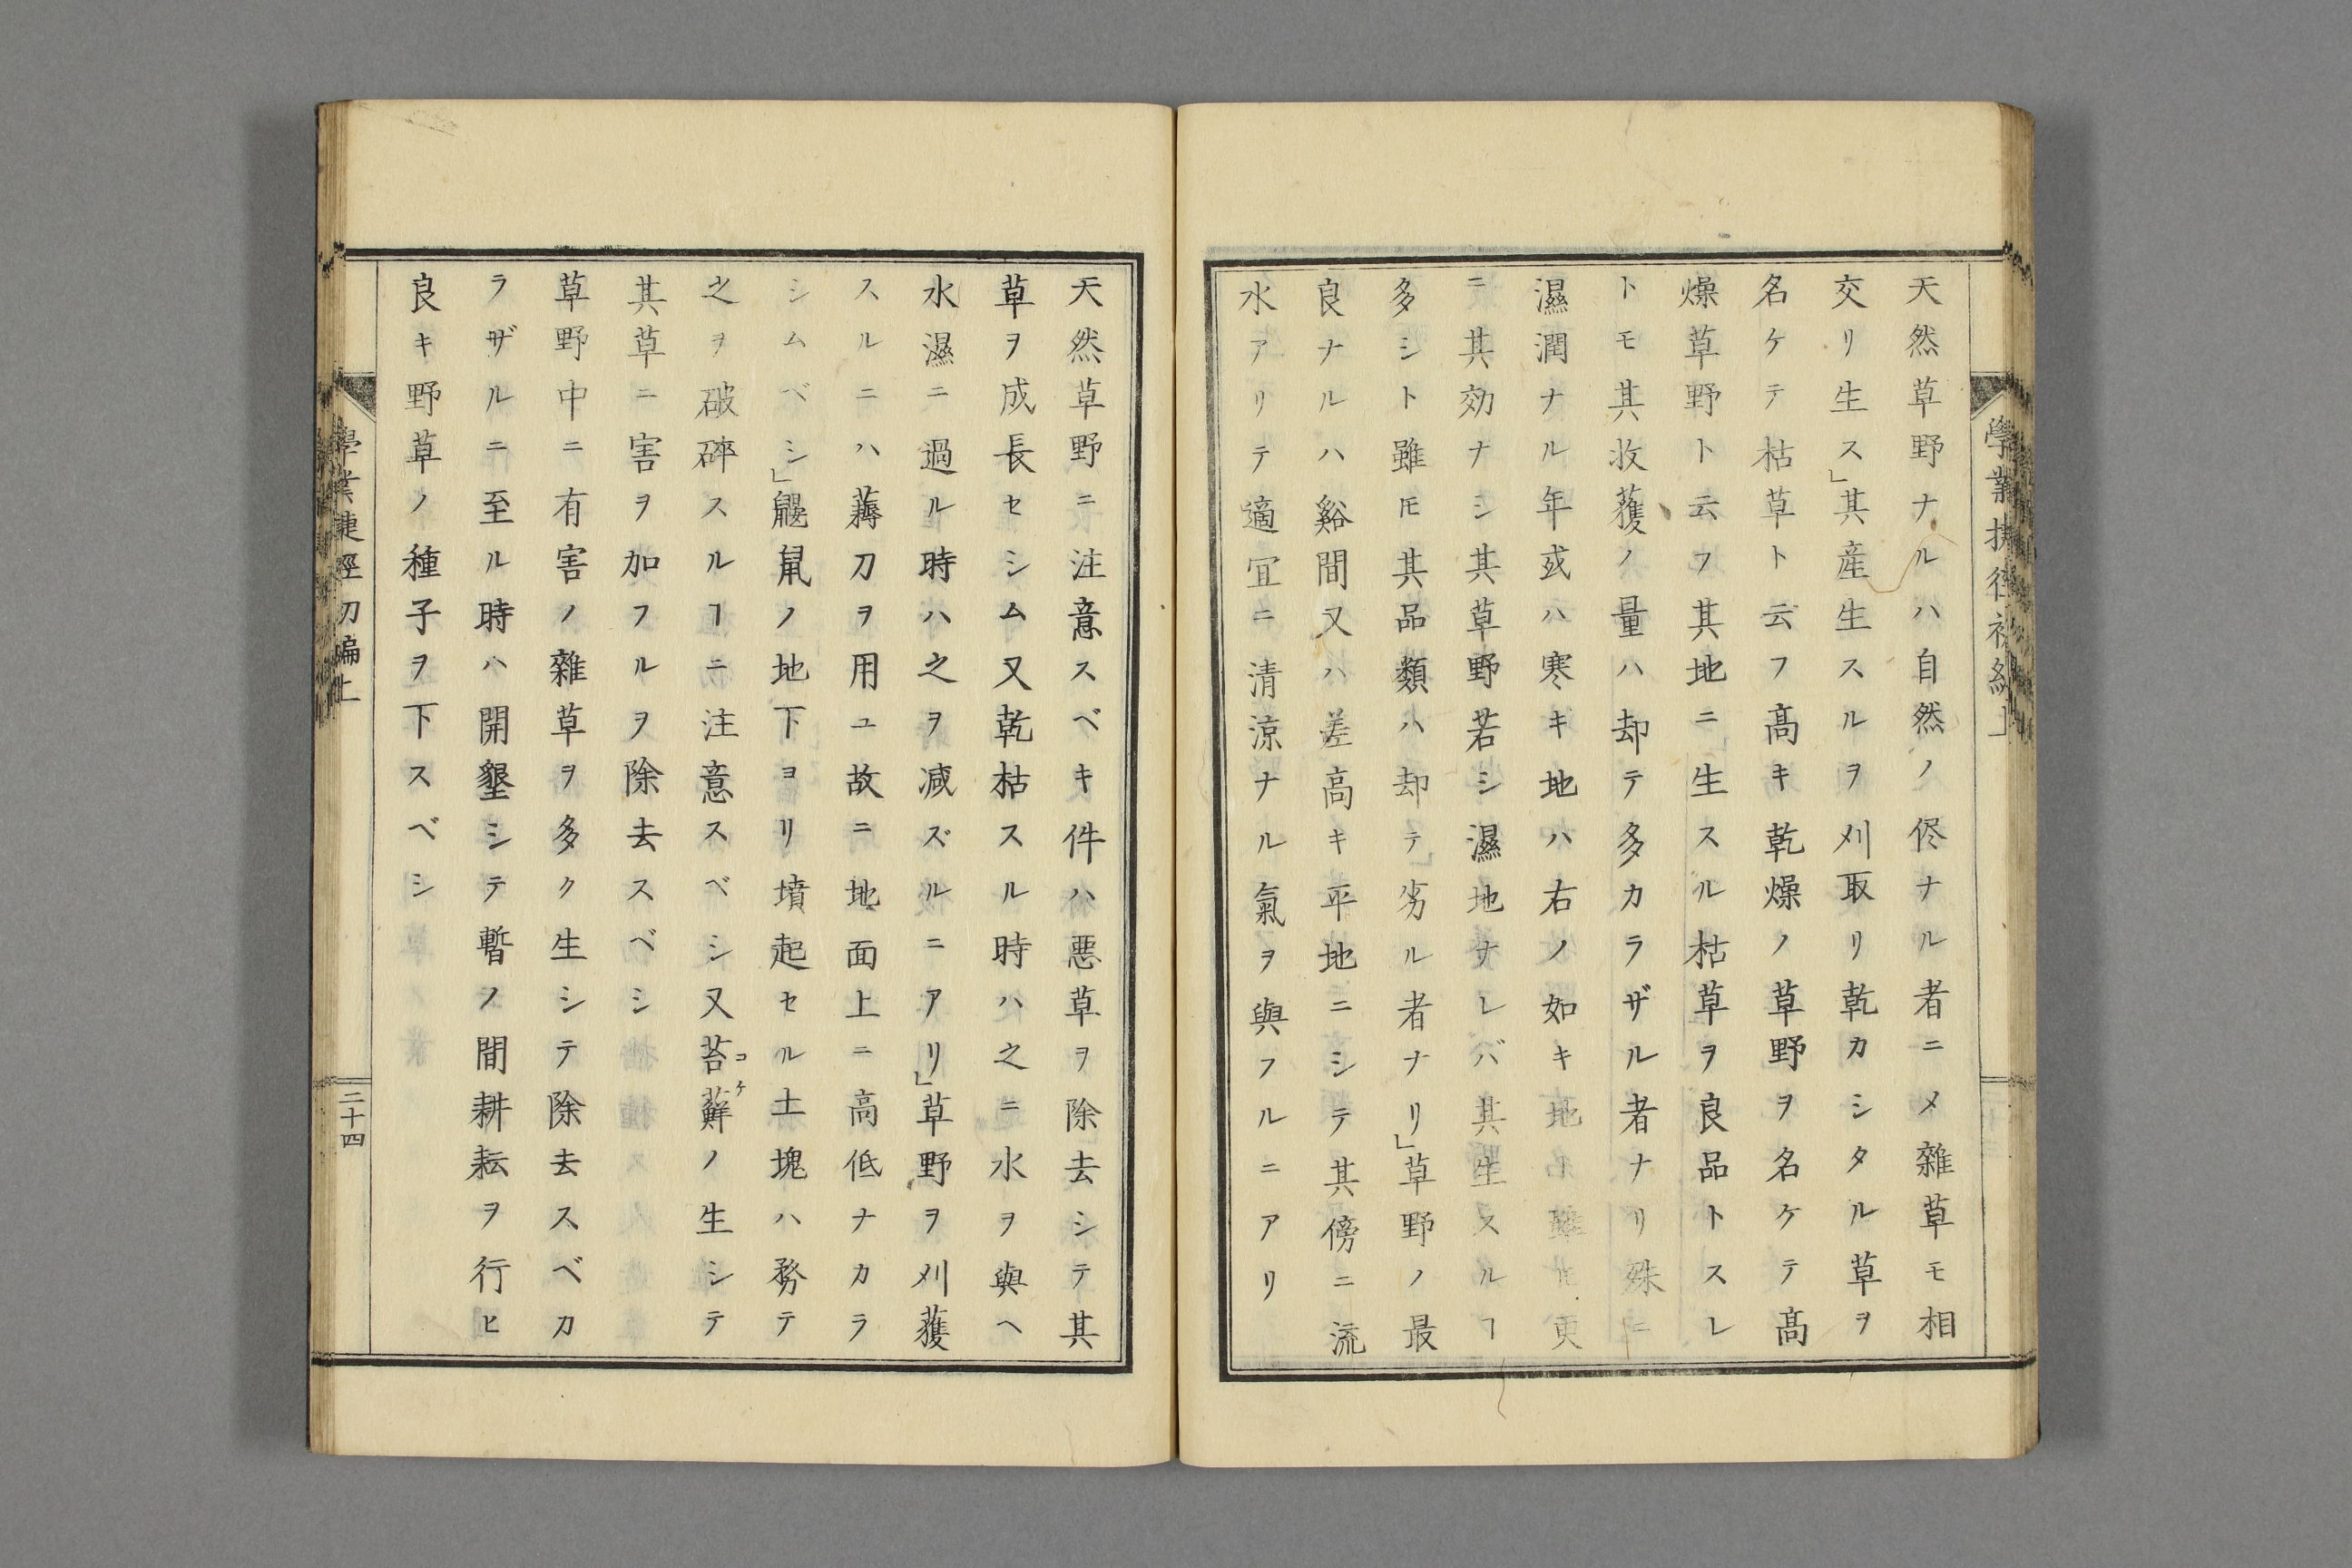 天然草野ナルハ自然ノ侭ナル者ニメ雑草モ相
交リ生ス」其産生スルヲ刈取リ乾カシタル草ヲ
名ケテ枯草ト云フ高キ乾燥ノ草野ヲ名ケテ高
燥草野ト云フ其地ニ生スル枯草ヲ良品トスレ
トモ其收獲ノ量ハ却テ多カラザル者ナリ殊ニ
濕潤ナル年或ハ寒キ地ハ右ノ如キ地ト雖𪜈更
ニ其効ナシ其草野若シ濕地ナレバ其生スルヿ
多シト雖𪜈其品類ハ却テ劣ル者ナリ」草野ノ最
良ナルハ谿間又ハ差高キ平地ニシテ其傍ニ流
水アリテ適冝ニ清涼ナル氣ヲ與フルニアリ
天然草野ニ注意スベキ件ハ惡草ヲ除去シテ其
草ヲ成長セシム又乾枯スル時ハ之ニ水ヲ與ヘ
水濕ニ過ル時ハ之ヲ减ズルニアリ」草野ヲ刈獲
スルニハ薅刀ヲ用ユ故ニ地面上ニ高低ナカラ
シムベシ」鼴鼠ノ地下ヨリ墳起セル土塊ハ務テ
之ヲ破碎スルヿニ注意スベシ又苔蘚ノ生シテ
コケ
其草ニ害ヲ加フルヲ除去スベシ
草野中ニ有害ノ雜草ヲ多ク生シテ除去スベカ
ラザルニ至ル時ハ開墾シテ暫ノ間耕耘ヲ行ヒ
良キ野草ノ種子ヲ下スベシ
學業捷徑初編上
二十四